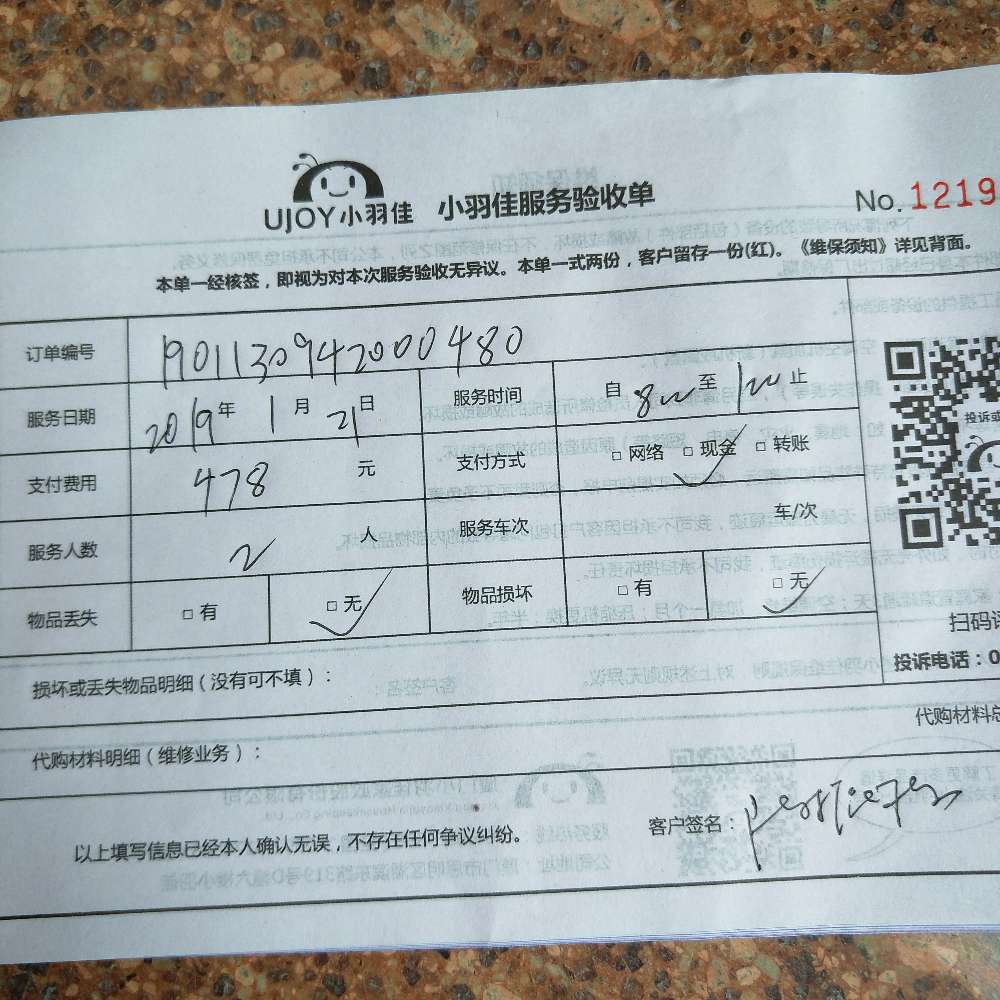 UJOY小羽佳 小羽佳服务验收单 No. 1219
本单一经核签，即视为对本次服务验收无异议。本单一式两份，客户留存一份(红)。《维保须知》详见背面。
订单编号 1901130942000480
服务日期 2019年 1月 21日 服务时间 自 至 止
支付费用 478 元 支付方式 □ 网络 □ 现金 □ 转账
服务人数 2 人 服务车次 车/次
物品丢失 □ 有 □ 无 物品损坏 □ 有 □ 无
投诉或
扫码
投诉电话：0
损坏或丢失物品明细（没有可不填）：
代购材料明细（维修业务）： 代购材料
以上填写信息已经本人确认无误，不存在任何争议纠纷。 客户签名：